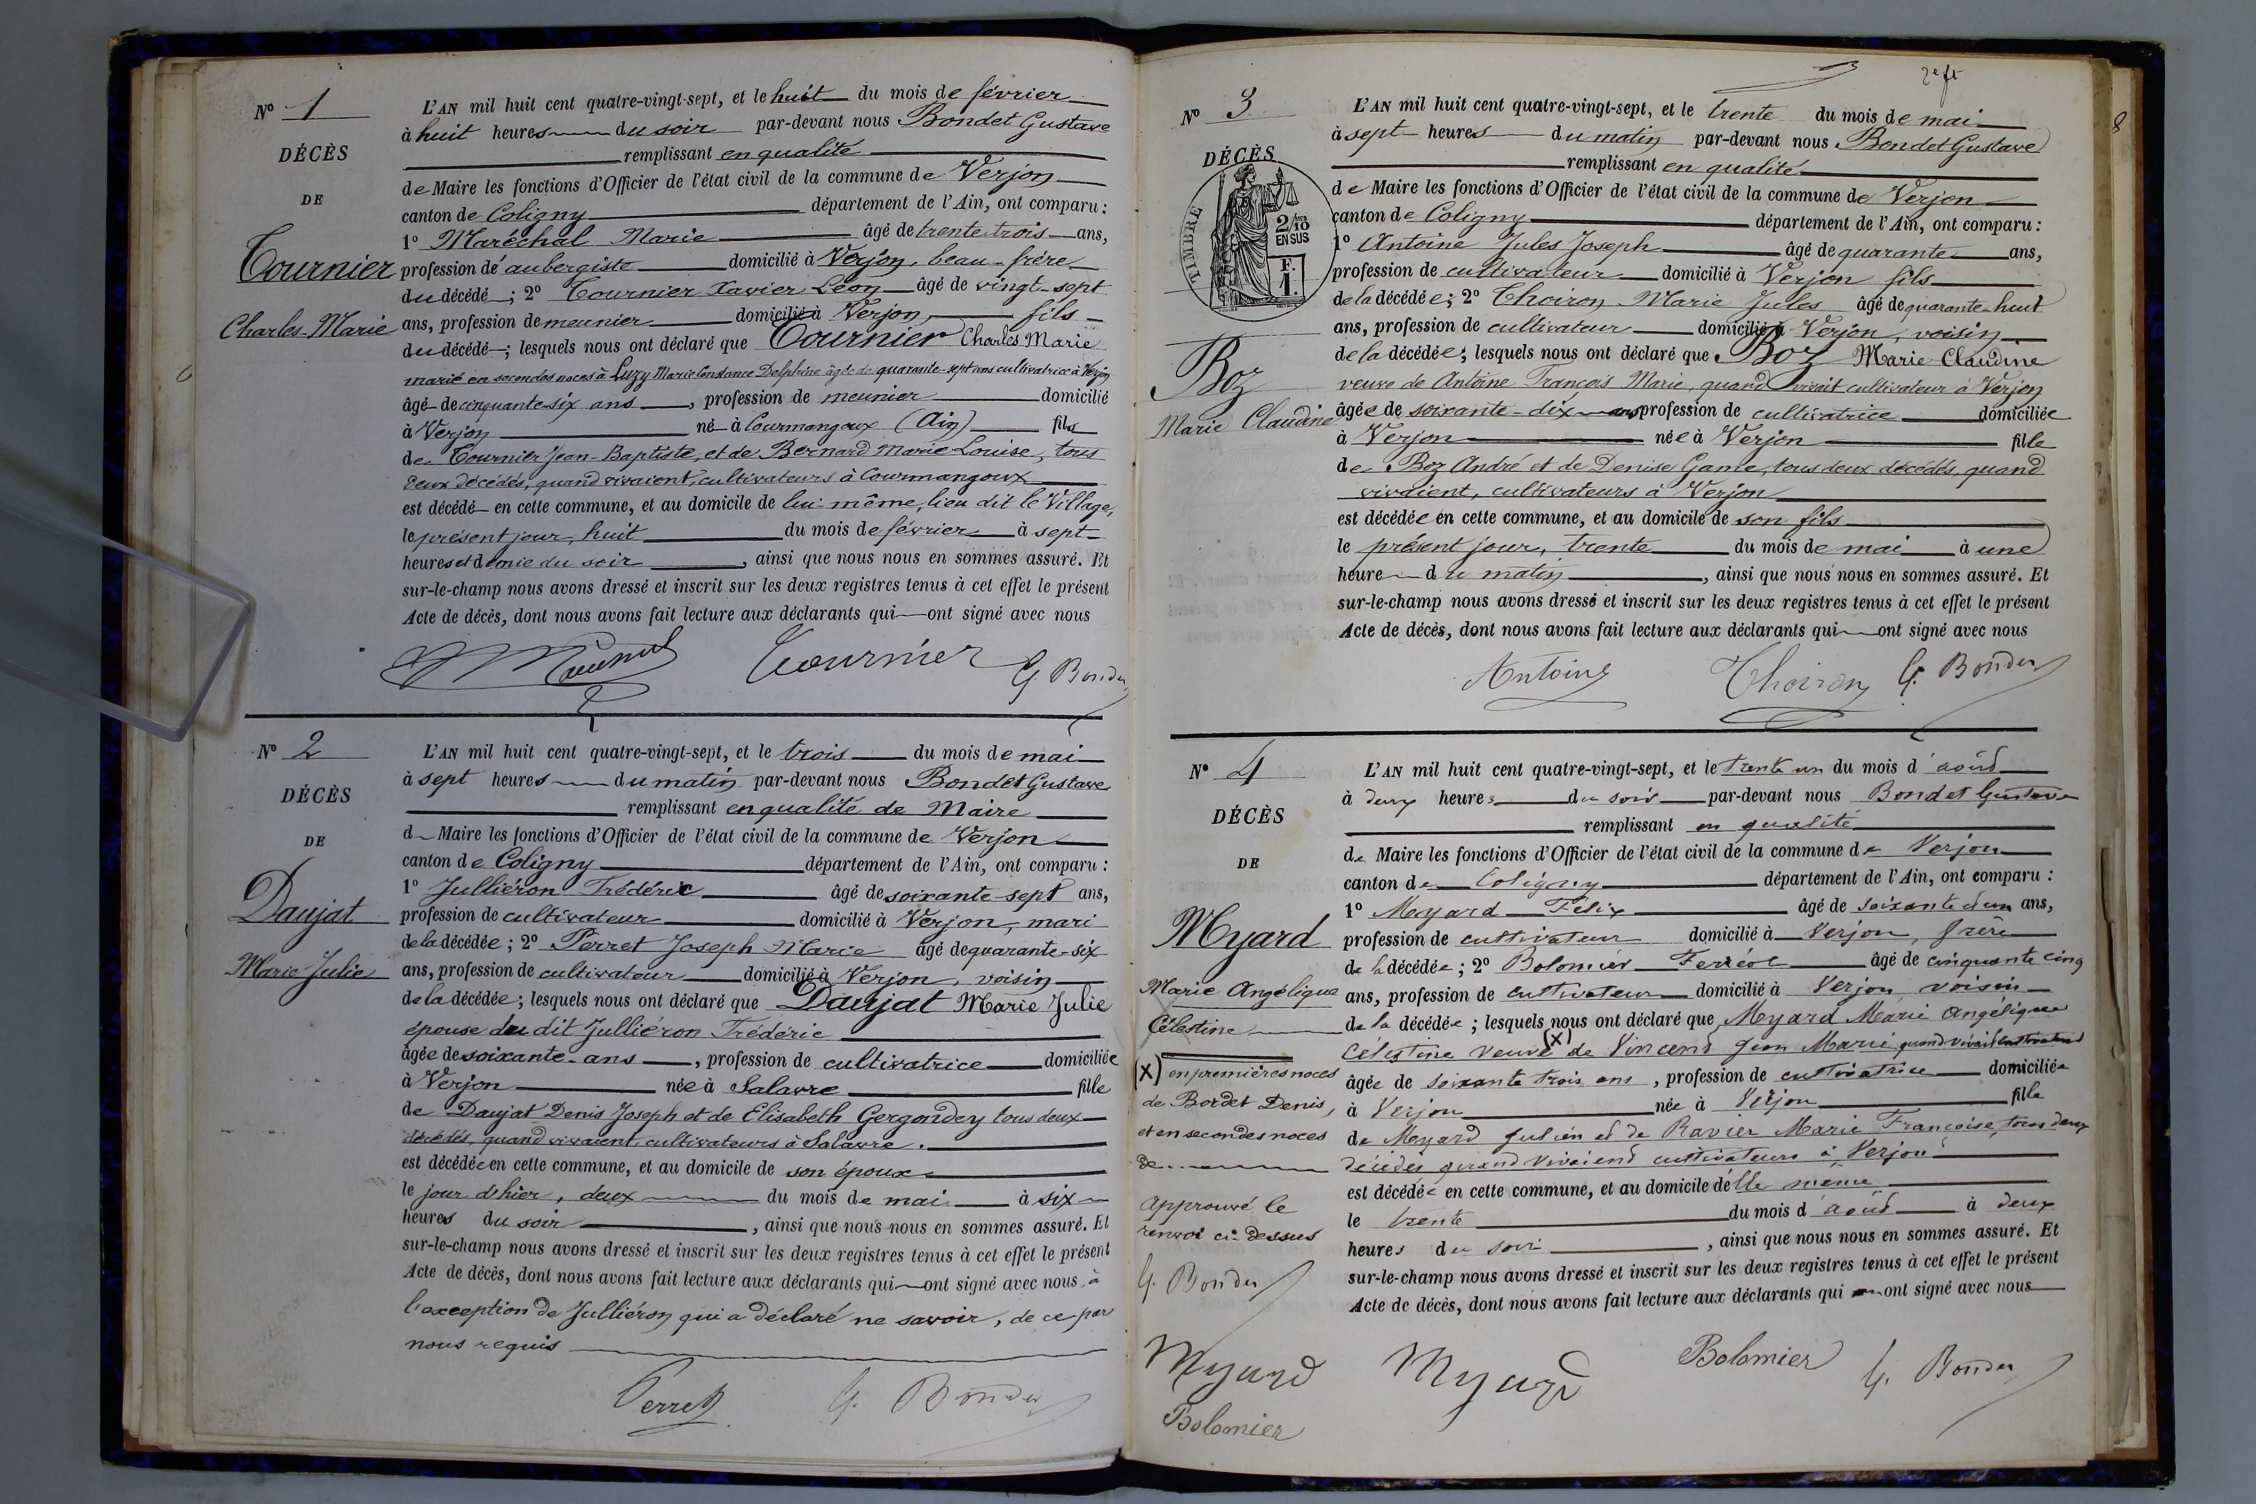 Nº 1
DÉCÈS
DE
Tournier
Charles-Marie
L'AN mil huit cent quatre-vingt-sept, et le huit du mois de février
à huit heures du soir par-devant nous Bondet Gustave
remplissant en qualité
de Maire les fonctions d'Officier de l'état civil de la commune de Verjon
canton de Coligny département de l'Ain, ont comparu :
1º Maréchal Marie âgé de trente-trois ans,
profession d'aubergiste domicilié à Verjon, beau-frère
du décédé ; 2º Tournier Xavier Léon âgé de vingt-sept
ans, profession de meunier domicilié à Verjon, fils
du décédé ; lesquels nous ont déclaré que Tournier Charles Marie
marié en secondes noces à Luzy Marie Constance Delphine âgée de quarante-sept ans cultivatrice à Verjon
âgé de cinquante-six ans, profession de meunier domicilié
à Verjon né à Courmangoux (Ain) fils
de Tournier Jean-Baptiste, et de Bernard Marie-Louise, tous
deux décédés, quand vivaient, cultivateurs à Courmangoux
est décédé en cette commune, et au domicile de lui-même, lieu dit le Village,
le présent jour, huit du mois de février à sept
heures et demie du soir, ainsi que nous nous en sommes assuré. Et
sur-le-champ nous avons dressé et inscrit sur les deux registres tenus à cet effet le présent
Acte de décès, dont nous avons fait lecture aux déclarants qui ont signé avec nous
Tournier G. Bondet
Nº 2
DÉCÈS
DE
Daujat
Marie Julie
L'AN mil huit cent quatre-vingt-sept, et le trois du mois de mai
à sept heures du matin par-devant nous Bondet Gustave
remplissant en qualité de Maire
d Maire les fonctions d'Officier de l'état civil de la commune de Verjon
canton de Coligny département de l'Ain, ont comparu :
1º Julliéron Frédéric âgé de soixante-sept ans,
profession de cultivateur domicilié à Verjon, mari
de la décédée ; 2º Perret Joseph Marie âgé de quarante-six
ans, profession de cultivateur domicilié à Verjon, voisin
de la décédée ; lesquels nous ont déclaré que Daujat Marie Julie
épouse du dit Julliéron Frédéric
âgée de soixante-ans, profession de cultivatrice domiciliée
à Verjon née à Salavre fille
de Daujat Denis Joseph et de Elisabeth Gergondey tous deux
décédés, quand vivaient, cultivateurs à Salavre.
est décédée en cette commune, et au domicile de son époux
le jour d'hier, deux du mois de mai à six
heures du soir, ainsi que nous nous en sommes assuré. Et
sur-le-champ nous avons dressé et inscrit sur les deux registres tenus à cet effet le présent
Acte de décès, dont nous avons fait lecture aux déclarants qui ont signé avec nous à
l'exception de Julliéron qui a déclaré ne savoir, de ce par
nous requis
Perret G. Bondet
2e ft
8
Nº 3
DÉCÈS
TIMBRE
2/10
EN SUS
F.
1.
Boz
Marie Claudine
L'AN mil huit cent quatre-vingt-sept, et le trente du mois de mai
à sept heures du matin par-devant nous Bondet Gustave
remplissant en qualité
de Maire les fonctions d'Officier de l'état civil de la commune de Verjon
canton de Coligny département de l'Ain, ont comparu :
1º Antoine Jules Joseph âgé de quarante ans,
profession de cultivateur domicilié à Verjon fils
de la décédée ; 2º Thoiron Marie Jules âgé de quarante-huit
ans, profession de cultivateur domicilié à Verjon, voisin
de la décédée ; lesquels nous ont déclaré que Boz Marie Claudine
veuve de Antoine François Marie, quand vivait cultivateur à Verjon
âgée de soixante-dix ans profession de cultivatrice domiciliée
à Verjon née à Verjon fille
de Boz André et de Denise Game, tous deux décédés, quand
vivaient, cultivateurs à Verjon
est décédée en cette commune, et au domicile de son fils
le présent jour, trente du mois de mai à une
heure du matin, ainsi que nous nous en sommes assuré. Et
sur-le-champ nous avons dressé et inscrit sur les deux registres tenus à cet effet le présent
Acte de décès, dont nous avons fait lecture aux déclarants qui ont signé avec nous
Antoine Thoiron G. Bondet
Nº 4
DÉCÈS
DE
Myard
Marie Angélique
Célestine
(X) en premières noces
de Bordet Denis,
et en secondes noces
de
Approuvé le
renvoi ci-dessus
G. Bondet
Myard
Bolomier
L'AN mil huit cent quatre-vingt-sept, et le trente un du mois d'août
à deux heures du soir par-devant nous Bondet Gustave
remplissant en qualité
de Maire les fonctions d'Officier de l'état civil de la commune de Verjon
canton de Coligny département de l'Ain, ont comparu :
1º Myard Félix âgé de soixante et un ans,
profession de cultivateur domicilié à Verjon, frère
de la décédée ; 2º Bolomier Ferréol âgé de cinquante cinq
ans, profession de cultivateur domicilié à Verjon voisin
de la décédée ; lesquels nous ont déclaré que Myard Marie Angélique
Célestine veuve (X) de Vincend Jean Marie quand vivait cultivateur
âgée de soixante trois ans, profession de cultivatrice domiciliée
à Verjon née à Verjon fille
de Myard Julien et de Ravier Marie Françoise, tous deux
décédés quand vivaient cultivateurs à Verjon
est décédée en cette commune, et au domicile d'elle même
le trente du mois d'août à deux
heures du soir, ainsi que nous nous en sommes assuré. Et
sur-le-champ nous avons dressé et inscrit sur les deux registres tenus à cet effet le présent
Acte de décès, dont nous avons fait lecture aux déclarants qui ont signé avec nous
Myard Bolomier G. Bondet